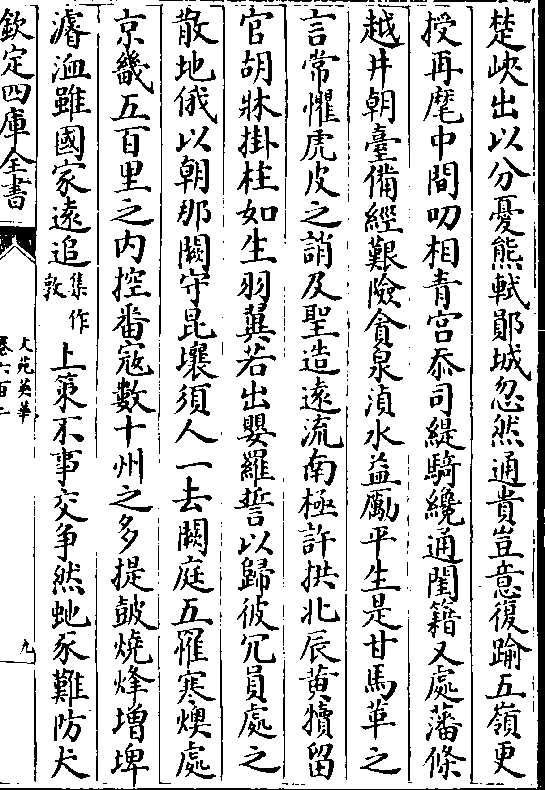 楚峽出以分憂熊軾鄖城忽然通貴豈意復踰五嶺更
授再麾中間叨相青宮忝司緹騎纔通閨籍又處藩條
越井朝臺備經艱險貪泉湞水益勵平生是甘馬革之
言常懼虎皮之誚及聖造遠流南極許拱北辰黄犢留
官胡牀掛柱如生羽翼若出嬰羅誓以歸彼冗員處之
散地俄以朝那闕守昆壤須人一去闕庭五罹寒燠處
京畿五百里之内控番寇數十州之多提鼓燒烽增埤
濬洫雖國家遠追集作敦上策不事交争然虵豕難防犬
欽定四庫全書
文苑英華
卷六百二
九